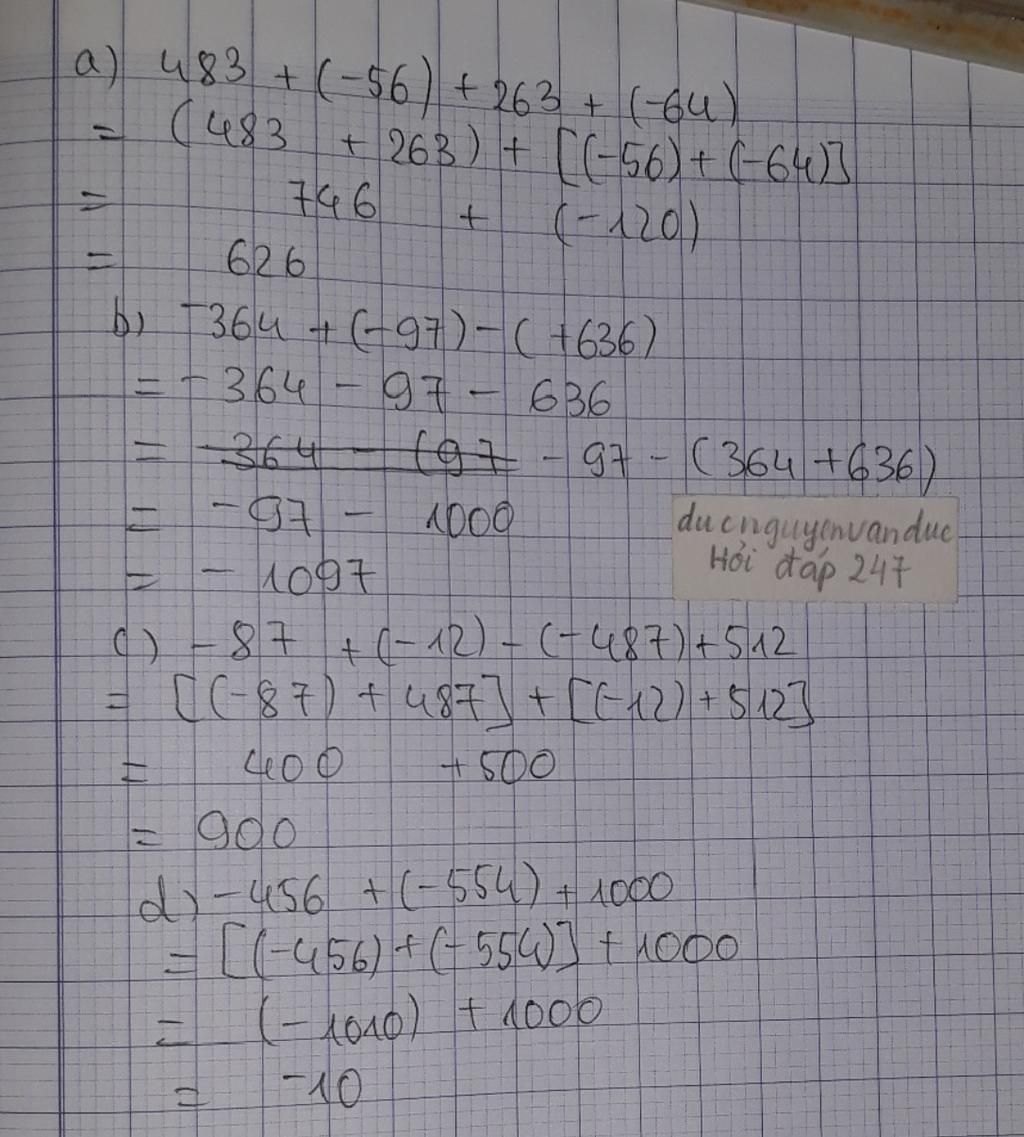 a) 483 + (-56) + 263 + (-64)
= (483 + 263) + [(-56) + (-64)]
= 746 + (-120)
= 626
b) -364 + (-97) - (+636)
= -364 - 97 - 636
= -364 - (97 - 97 - (364 + 636)
= -97 - 1000
= -1097
ducnguyenvanduc
Hỏi đáp 247
c) -87 + (-12) - (-487) + 512
= [(-87) + 487] + [(-12) + 512]
= 400 + 500
= 900
d) -456 + (-554) + 1000
= [(-456) + (-554)] + 1000
= (-1010) + 1000
= -10